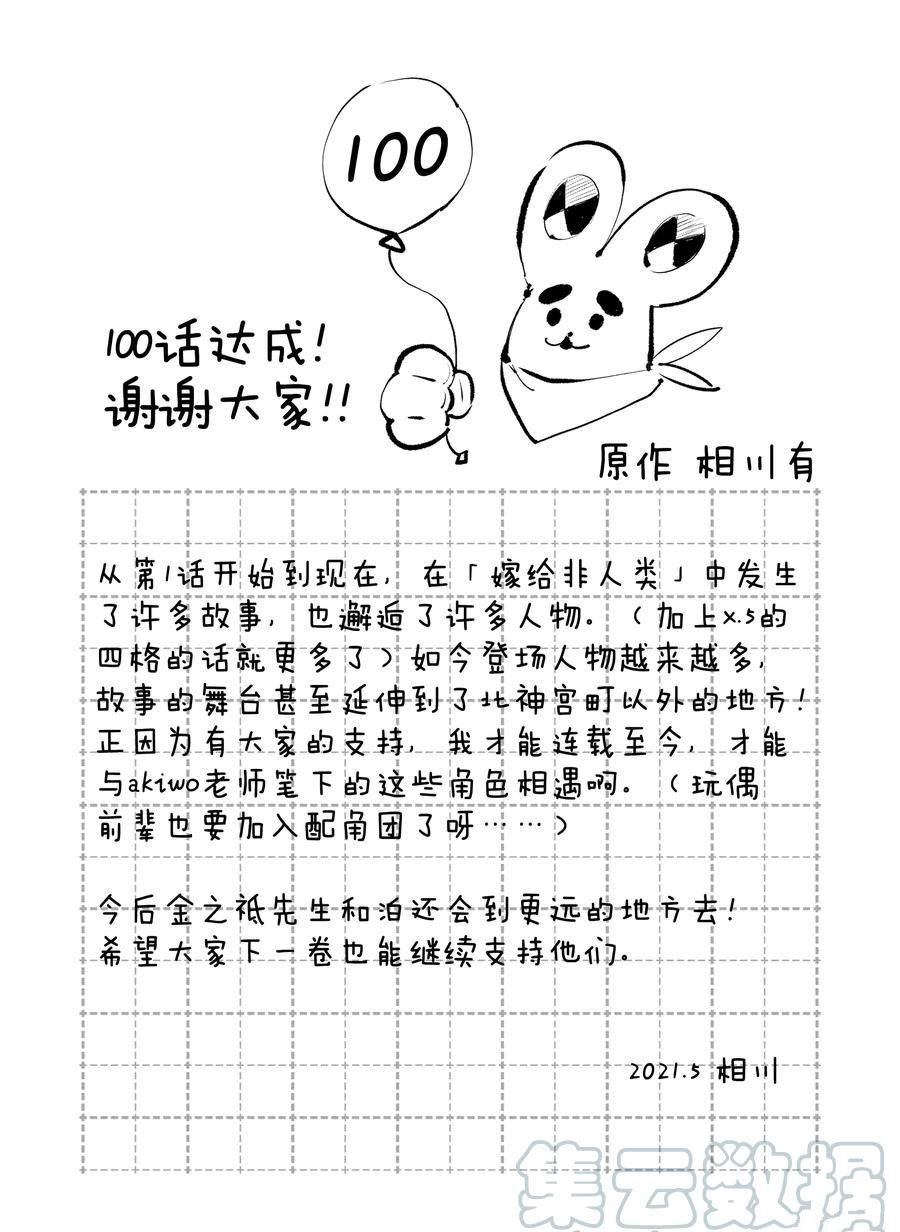 100
100话达成!
谢谢大家!!
原作 相川有
从第1话开始到现在,在「嫁给非人类」中发生
了许多故事,也邂逅了许多人物。(加上x.5的
四格的话就更多了)如今登场人物越来越多,
故事的舞台甚至延伸到了北神宫町以外的地方!
正因为有大家的支持,我才能连载至今,才能
与akiwo老师笔下的这些角色相遇啊。(玩偶
前辈也要加入配角团了呀……)
今后金之祗先生和泊还会到更远的地方去!
希望大家下一卷也能继续支持他们。
2021.5 相川
集云数据